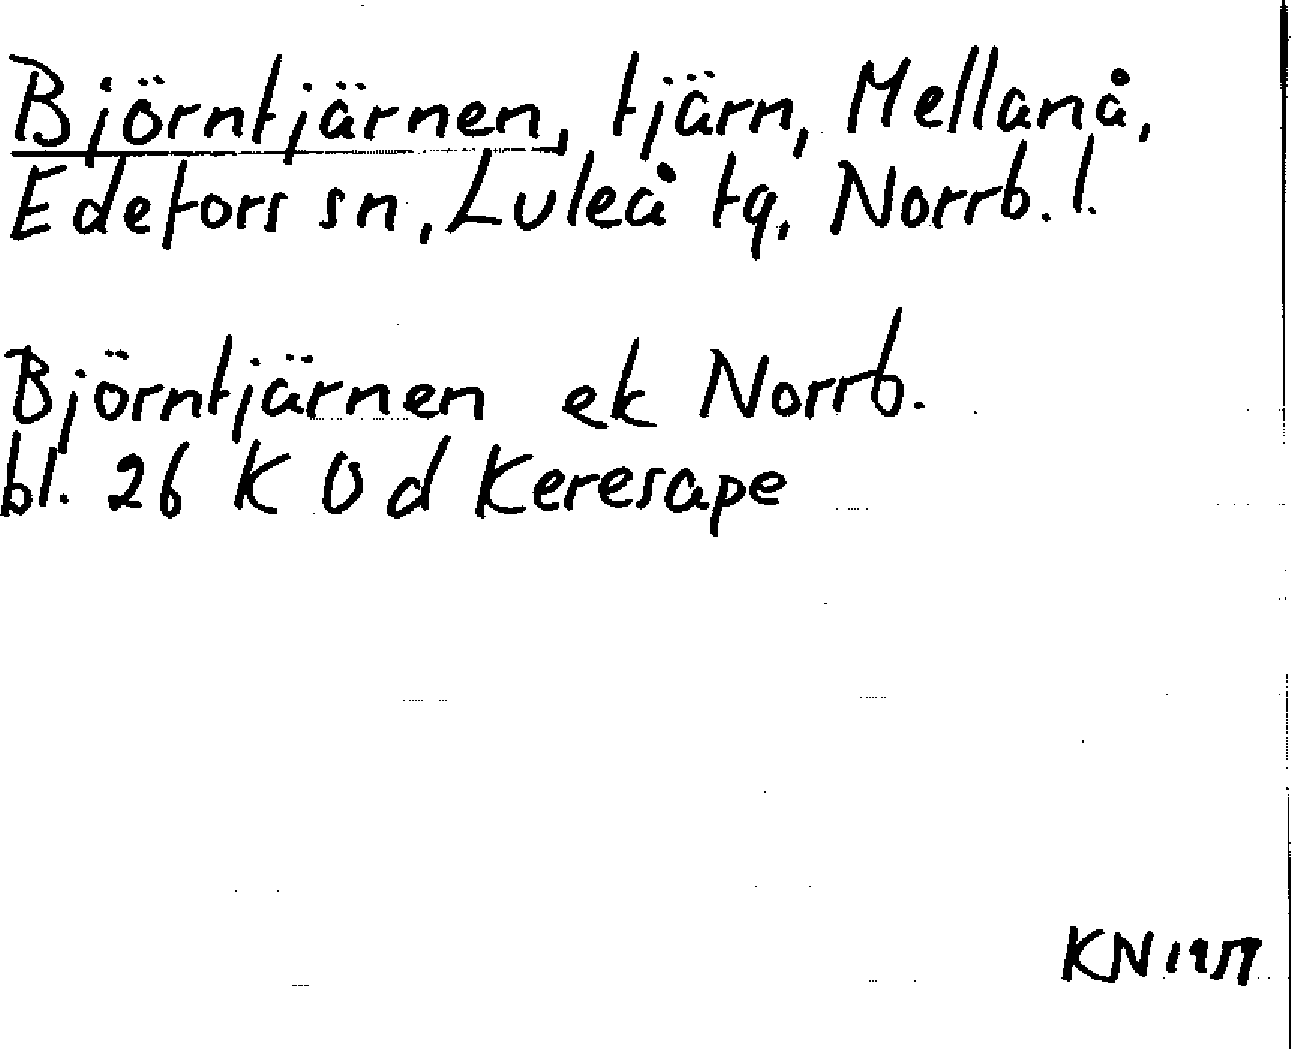 Björntjärnen, tjärn, Mellanå,
Edefors sn, Luleå tg, Norrb. l.
Björntjärnen ek Norrb.
bl. 26 K 0 d Keresape
KN 1957